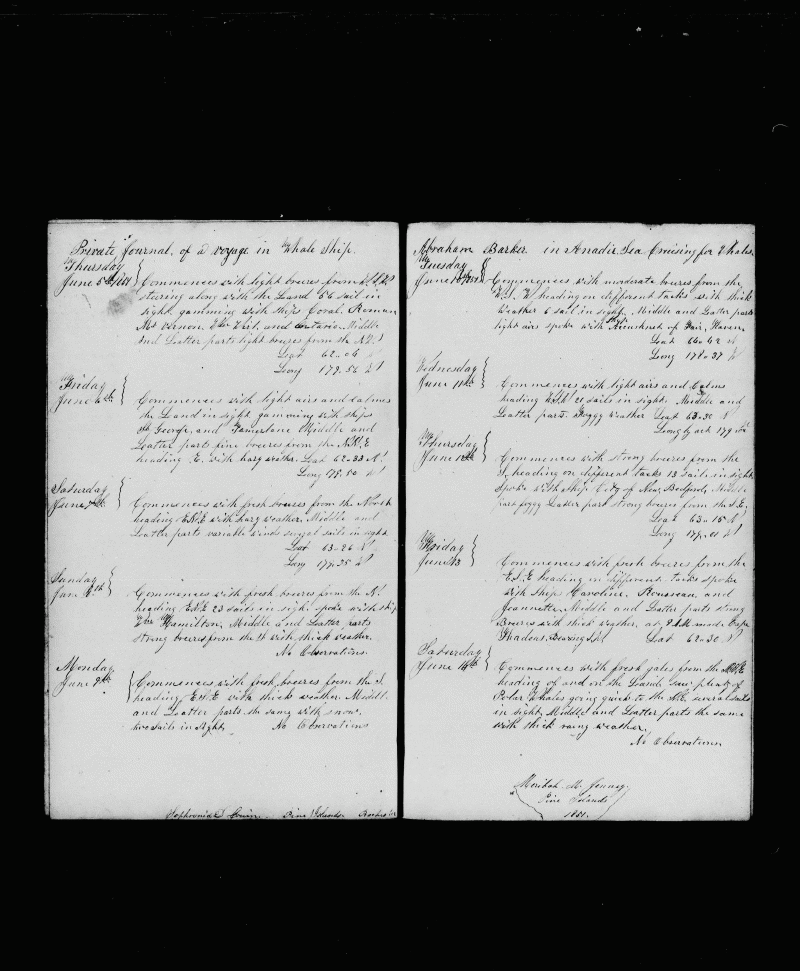 Private Journal, of a voyage in Whale Ship.
Thursday
June 5th 1851 } Commences with light breezes from
stering along with the Land 56 sail in
sight gamming with ships Coral, Roman
Mt Vernon, Wm Wirt, and Ontario. Middle
and Leatter parts light breezes from the
Leat 62-06 N
Leong 179.56 W
Friday
June 6th } Commences with light airs and calmes
the Land in sight gamming with ships
St George, and Tamerlane Middle and
Leatter parts fine breezes from the N.N.E
heading E. with hazy wether. Leat 62-33 N
Leong 178.50 W
Saturday
June 7th } Commences with fresh breezes from the North
heading E.N.E with hazy weather. Middle and
Leatter parts variable winds sails in sight
Leat 63-26 N
Leong 177-35 W
Sunday
June 8th } Commences with fresh breezes from the N.
heading E.N.E 23 sails in sight spoke with ship
Wm Hamilton, Middle and Leatter parts
strong breezes from the with thick weather.
No Observations.
Monday
June 9th { Commences with fresh breezes from the S.
heading E.N.E with thick weather. Middle
and Leatter parts the same with snow.
two sails in sight, No Observations
Pine Islands.
Abraham Barker in Anadir Sea Cruising for Whales,
Tuesday
June 10th 1851 { Commences with moderate breezes from the
W.S.W heading on different tacks with thick
Weather 6 sail in sight, Middle and Leatter parts
light airs spoke with of Fair, Haven
Leat 64-42 N
Leong 178-37 W
Wednesday
June 11th { Commences with light airs and Calms
heading 21 sails in sight. Middle and
Leatter parts foggy weather Leat 63-30 N
Leong by act 179
Thursday
June 12th { Commences with strong breezes from the
S, heading on different tacks 13 sails in sight
Spoke with ship City of New Bedford, Middle
part foggy Leatter part strong breezes from the S.E.
Leat 63-15 N
Leong 177-01 W
Friday
June 13 { Commences with fresh breezes from the
E.S.E heading in different tacks Spoke
with Ships Caroline, Rousseau, and
Jeannette. Middle and Leatter parts strong
Breezes with thick weather, at made Cape
Thadeus, Bearing Leat 62-30 N
Saturday
June 14th { Commences with fresh gales from the
heading off and on the Land, saw plenty of
Polar Whales going quick to the several sails
in sight, Middle and Leatter parts the same
with thick rainy weather,
No Observations
M. Jenney.
Pine Islands
1851.